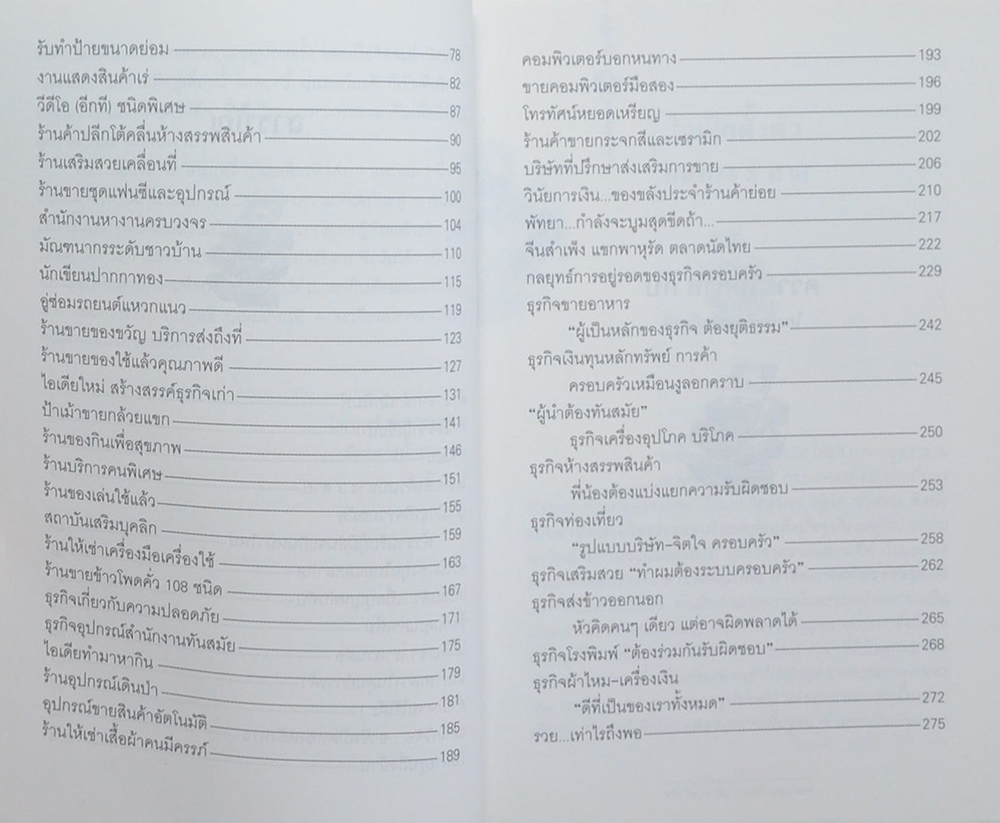 รับทำป้ายขนาดย่อม 78
งานแสดงสินค้าเร่ 82
วีดีโอ (อีกที) ชนิดพิเศษ 87
ร้านค้าปลีกโต้คลื่นห้างสรรพสินค้า 90
ร้านเสริมสวยเคลื่อนที่ 95
ร้านขายชุดแฟนซีและอุปกรณ์ 100
สำนักงานหางานครบวงจร 104
มัณฑนากรระดับชาวบ้าน 110
นักเขียนปากกาทอง 115
อู่ซ่อมรถยนต์แหวกแนว 119
ร้านขายของขวัญ บริการส่งถึงที่ 123
ร้านขายของใช้แล้วคุณภาพดี 127
ไอเดียใหม่ สร้างสรรค์ธุรกิจเก่า 131
ป้าเม้าขายกล้วยแขก 141
ร้านของกินเพื่อสุขภาพ 146
ร้านบริการคนพิเศษ 151
ร้านของเล่นใช้แล้ว 155
สถาบันเสริมบุคลิก 159
ร้านให้เช่าเครื่องมือเครื่องใช้ 163
ร้านขายข้าวโพดคั่ว 108 ชนิด 167
ธุรกิจเกี่ยวกับความปลอดภัย 171
ธุรกิจอุปกรณ์สำนักงานทันสมัย 175
ไอเดียทำมาหากิน 179
ร้านอุปกรณ์เดินป่า 181
อุปกรณ์ขายสินค้าอัตโนมัติ 185
ร้านให้เช่าเสื้อผ้าคนมีครรภ์ 189
คอมพิวเตอร์บอกหนทาง 193
ขายคอมพิวเตอร์มือสอง 196
โทรทัศน์หยอดเหรียญ 199
ร้านค้าขายกระจกสีและเซรามิก 202
บริษัทที่ปรึกษาส่งเสริมการขาย 206
วินัยการเงิน...ของขลังประจำร้านค้าย่อย 210
พัทยา...กำลังจะบูมสุดขีดถ้า... 217
จีนสำเพ็ง แขกพาหุรัด ตลาดนัดไทย 222
กลยุทธ์การอยู่รอดของธุรกิจครอบครัว 229
ธุรกิจขายอาหาร
“ผู้เป็นหลักของธุรกิจ ต้องยุติธรรม” 242
ธุรกิจเงินทุนหลักทรัพย์ การค้า
ครอบครัวเหมือนงูลอกคราบ 245
“ผู้นำต้องทันสมัย”
ธุรกิจเครื่องอุปโภค บริโภค 250
ธุรกิจห้างสรรพสินค้า
พี่น้องต้องแบ่งแยกความรับผิดชอบ 253
ธุรกิจท่องเที่ยว
“รูปแบบบริษัท-จิตใจ ครอบครัว” 258
ธุรกิจเสริมสวย “ทำผมต้องระบบครอบครัว” 262
ธุรกิจส่งข้าวออกนอก
หัวคิดคนๆ เดียว แต่อาจผิดพลาดได้ 265
ธุรกิจโรงพิมพ์ “ต้องร่วมกันรับผิดชอบ” 268
ธุรกิจผ้าไหม-เครื่องเงิน
“ดีที่เป็นของเราทั้งหมด” 272
รวย...เท่าไรถึงพอ 275